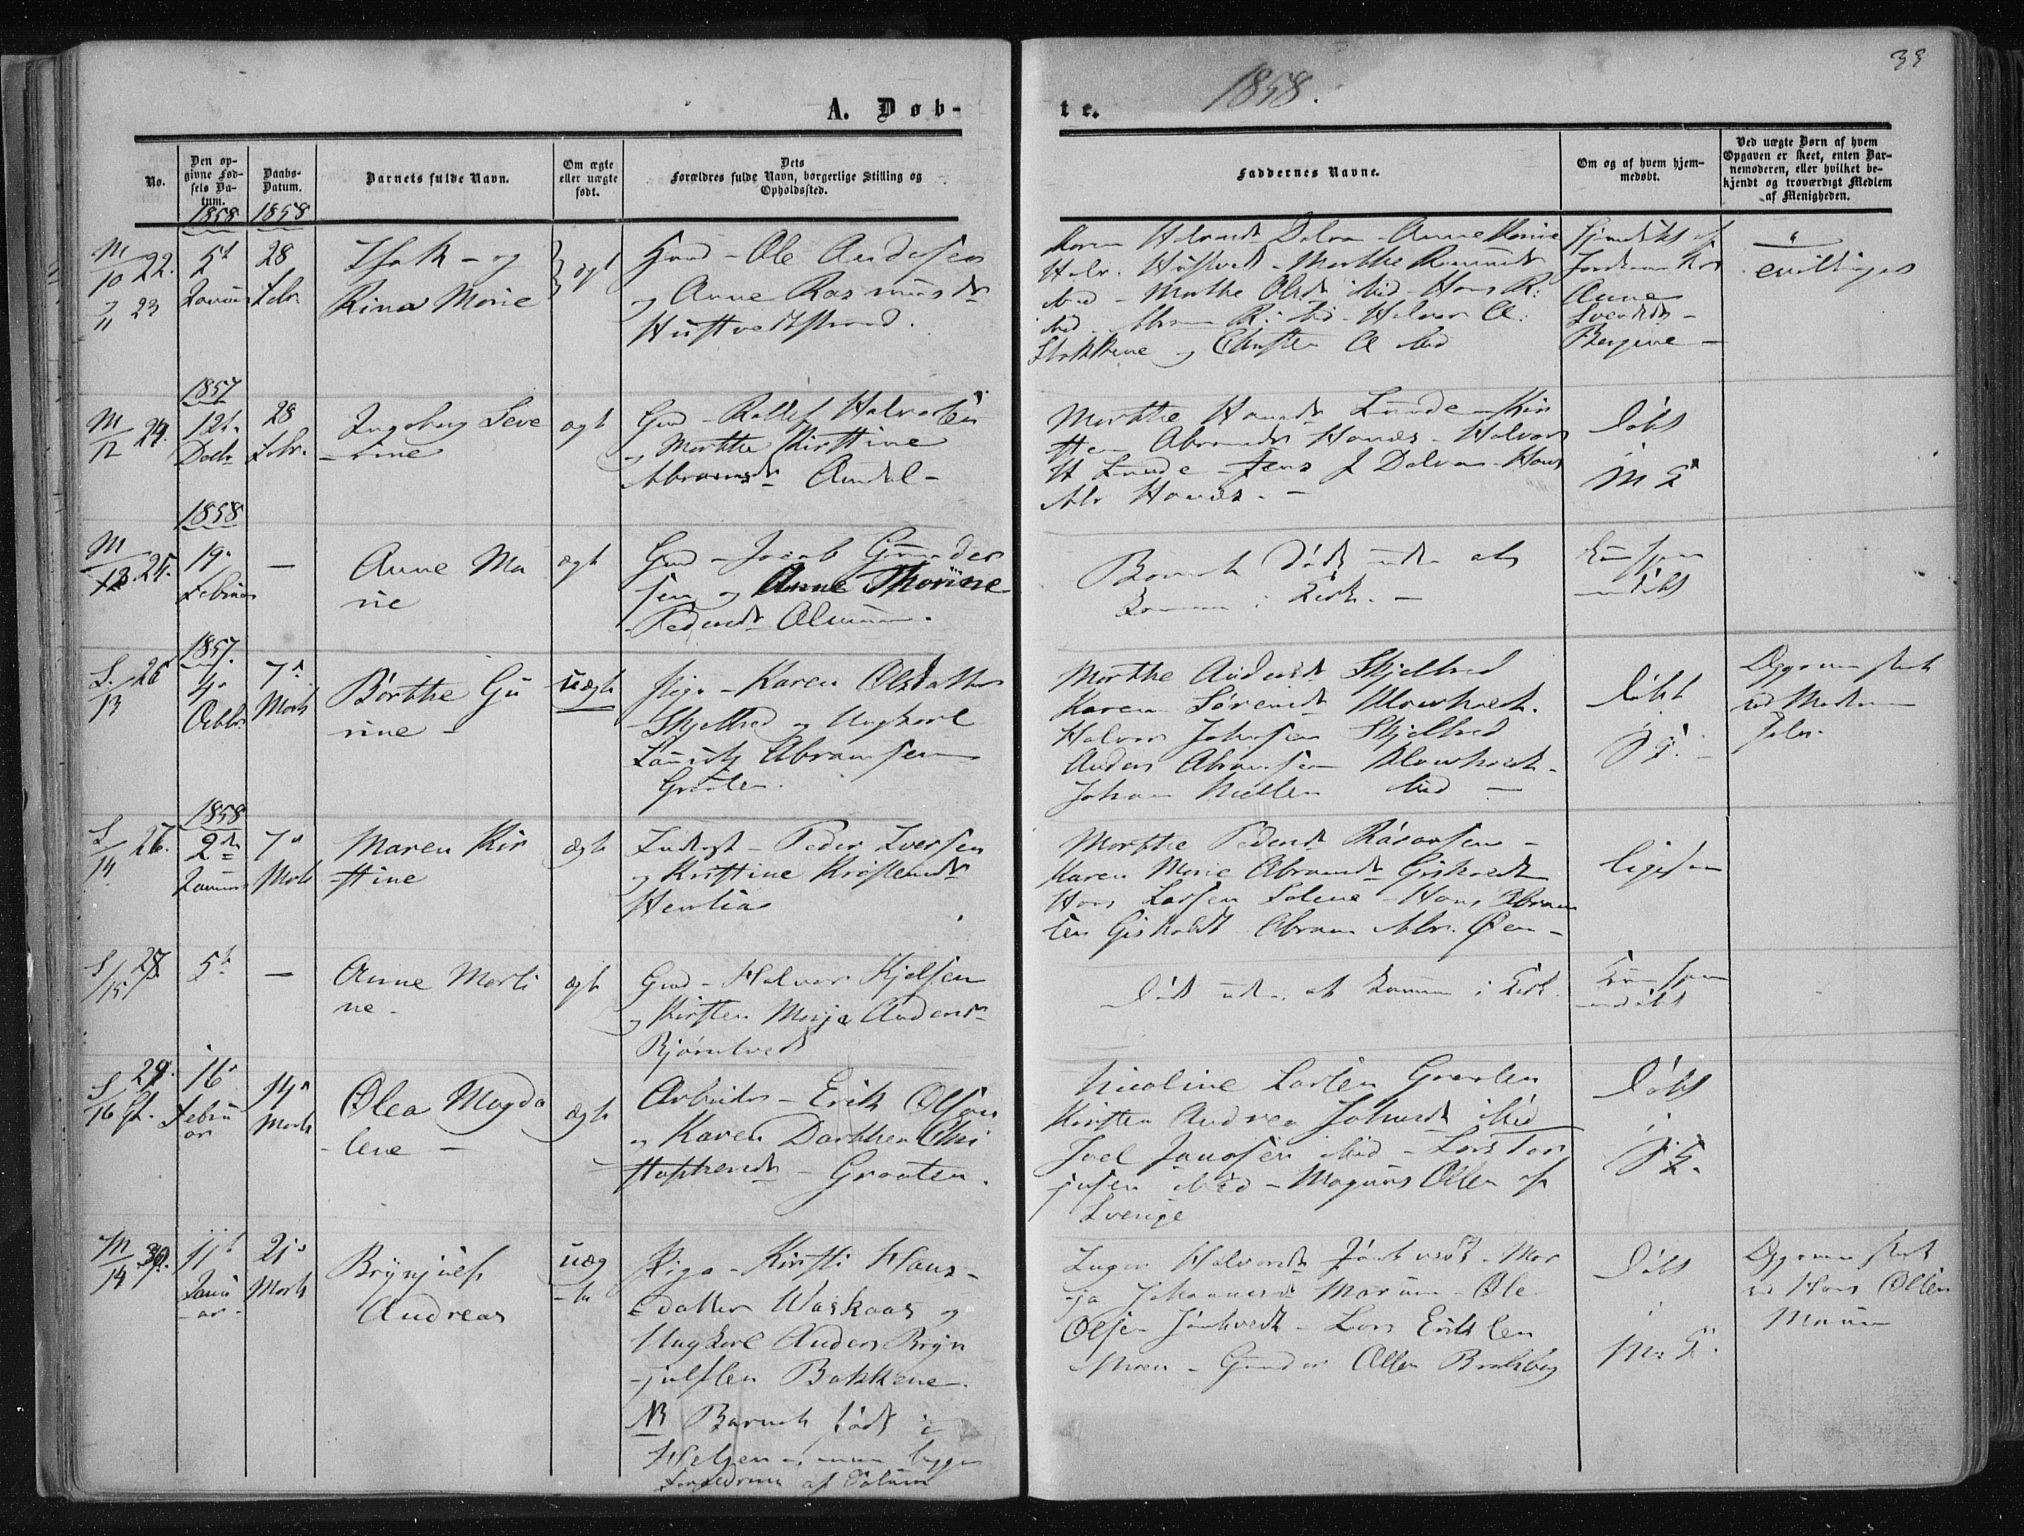 39
1858.
A. Døb-
te.
No.
Den op-
givne Fød-
sels Da-
tum.
Daabs-
Datum.
Barnets fulde Navn.
Om ægte
eller uægte
født.
Dets
Forældres fulde Navn, borgerlige Stilling og
Opholdssted.
Faddernes Navne.
Om og af hvem hjem-
medøbt.
Ved uægte Børn af hvem
Opgaven er skeet, enten Bar-
nemoderen, eller hvilket be-
kjendt og troværdigt Medlem
af Menigheden.
1858 1858
M/10 22.
11 23
5t
Januar
28
Febr.
Isak - og
Rina Marie
ægt
Gmd - Ole Andersen
og Anne Rasmusdr
Hustvedtstrand.
Anne Marie
Halv. Hustvedt - Marthe
Marthe Olsdr ibid - Hans R:
ibid. R: ibid - Halvor A:
Stokkene og Christen A ibid
Hjemdøbt af
Anne
Svendsdr -
Bergene -
tvillinger
1857
M/12 24.
12t
Decbr
28
Febr.
Ingeborg Seve
-rine
ægt
Gmd - Rollef Halvorsen
og Marthe Kirstine
Abramsdr Aandal -
Marthe Hansdr Lunde - Kir
sten Abramsdr Hanæs - Halvor
H Lunde - Jens J Dalva - Hans
Abr Hanæs. -
Døbt
i
M K
1858
M/13 25.
19.
Februar
-
Anne Ma
rie
ægt
Gmd - Jacob Gunder
sen og Anne Thorine
Pedersdr Alumn.
Barnet døde uden at
komme i Kirke. -
Kun hjem
medøbt
1857.
S./13 26
4.
Octbr
7de
Marts
Børthe Gu
rine -
uægte
Pige - Karen Olsdatter
Skjelbred og Ungkarl
Lauritz Abramsen
Graaten.
Marthe Andersdr Skjelbred
Karen Sørensdr
Halvor Johnsen Skjelbred
Anders Abramsen
Johan Nielsen ibid -
Døbt
i
S K.
Opgaven skeet
ved Moderen
selv.
1858
S/14 27.
2den
Januar
7de
Marts
Maren Kir
stine
ægte
Inderst - Peder Iversen
og Kirstine Kristensdr
Heulia
Marthe Pedersdr -
Karen Marie Abramsdr Gisholdt
Hans Larsen Solene - Hans Abram
sen Gisholdt Abram Abr. Øen -
ligesaa
S/15 28.
5t
-
Anne Marti
ne -
ægt
Gmd - Halvor Kjelsen
og Kirsten Marje Andersdr
Bjørntvedt
Død uden at komme i Kirke.
Kun hjem
medøbt
S/16 29.
16de
Febru
ar
14de
Marts
Olea Magda
-lene -
ægte
Arbeider - Erik Olsen
og Karen Dorthea Chri
stophersdr - Graaten.
Nicoline Larsen Graaten
Kirsten Andrea Johnsdr ibid
Joel Jansen ibid - Lars Tor
jusen ibid - Magnus Olsen af
Sverige
Døbt
i
S K.
M/14 30.
11t
Janu
-ar-
21de
Marts
Brynjulf
Andreas
uæg
-te
Pige - Kirsti Hans-
datter Waskaas og
Ungkarl Anders Bryn
-julfsen Bakkene.
NB Barnet født i
Forældrene af Solum
Inger Halvorsdr - Mar
ja Johannesdr - Ole
Olsen - Lars Eriksen
- Gunder Olsen
Døbt
i
M: K.
Opgaven skeet
ved Hans Olsen